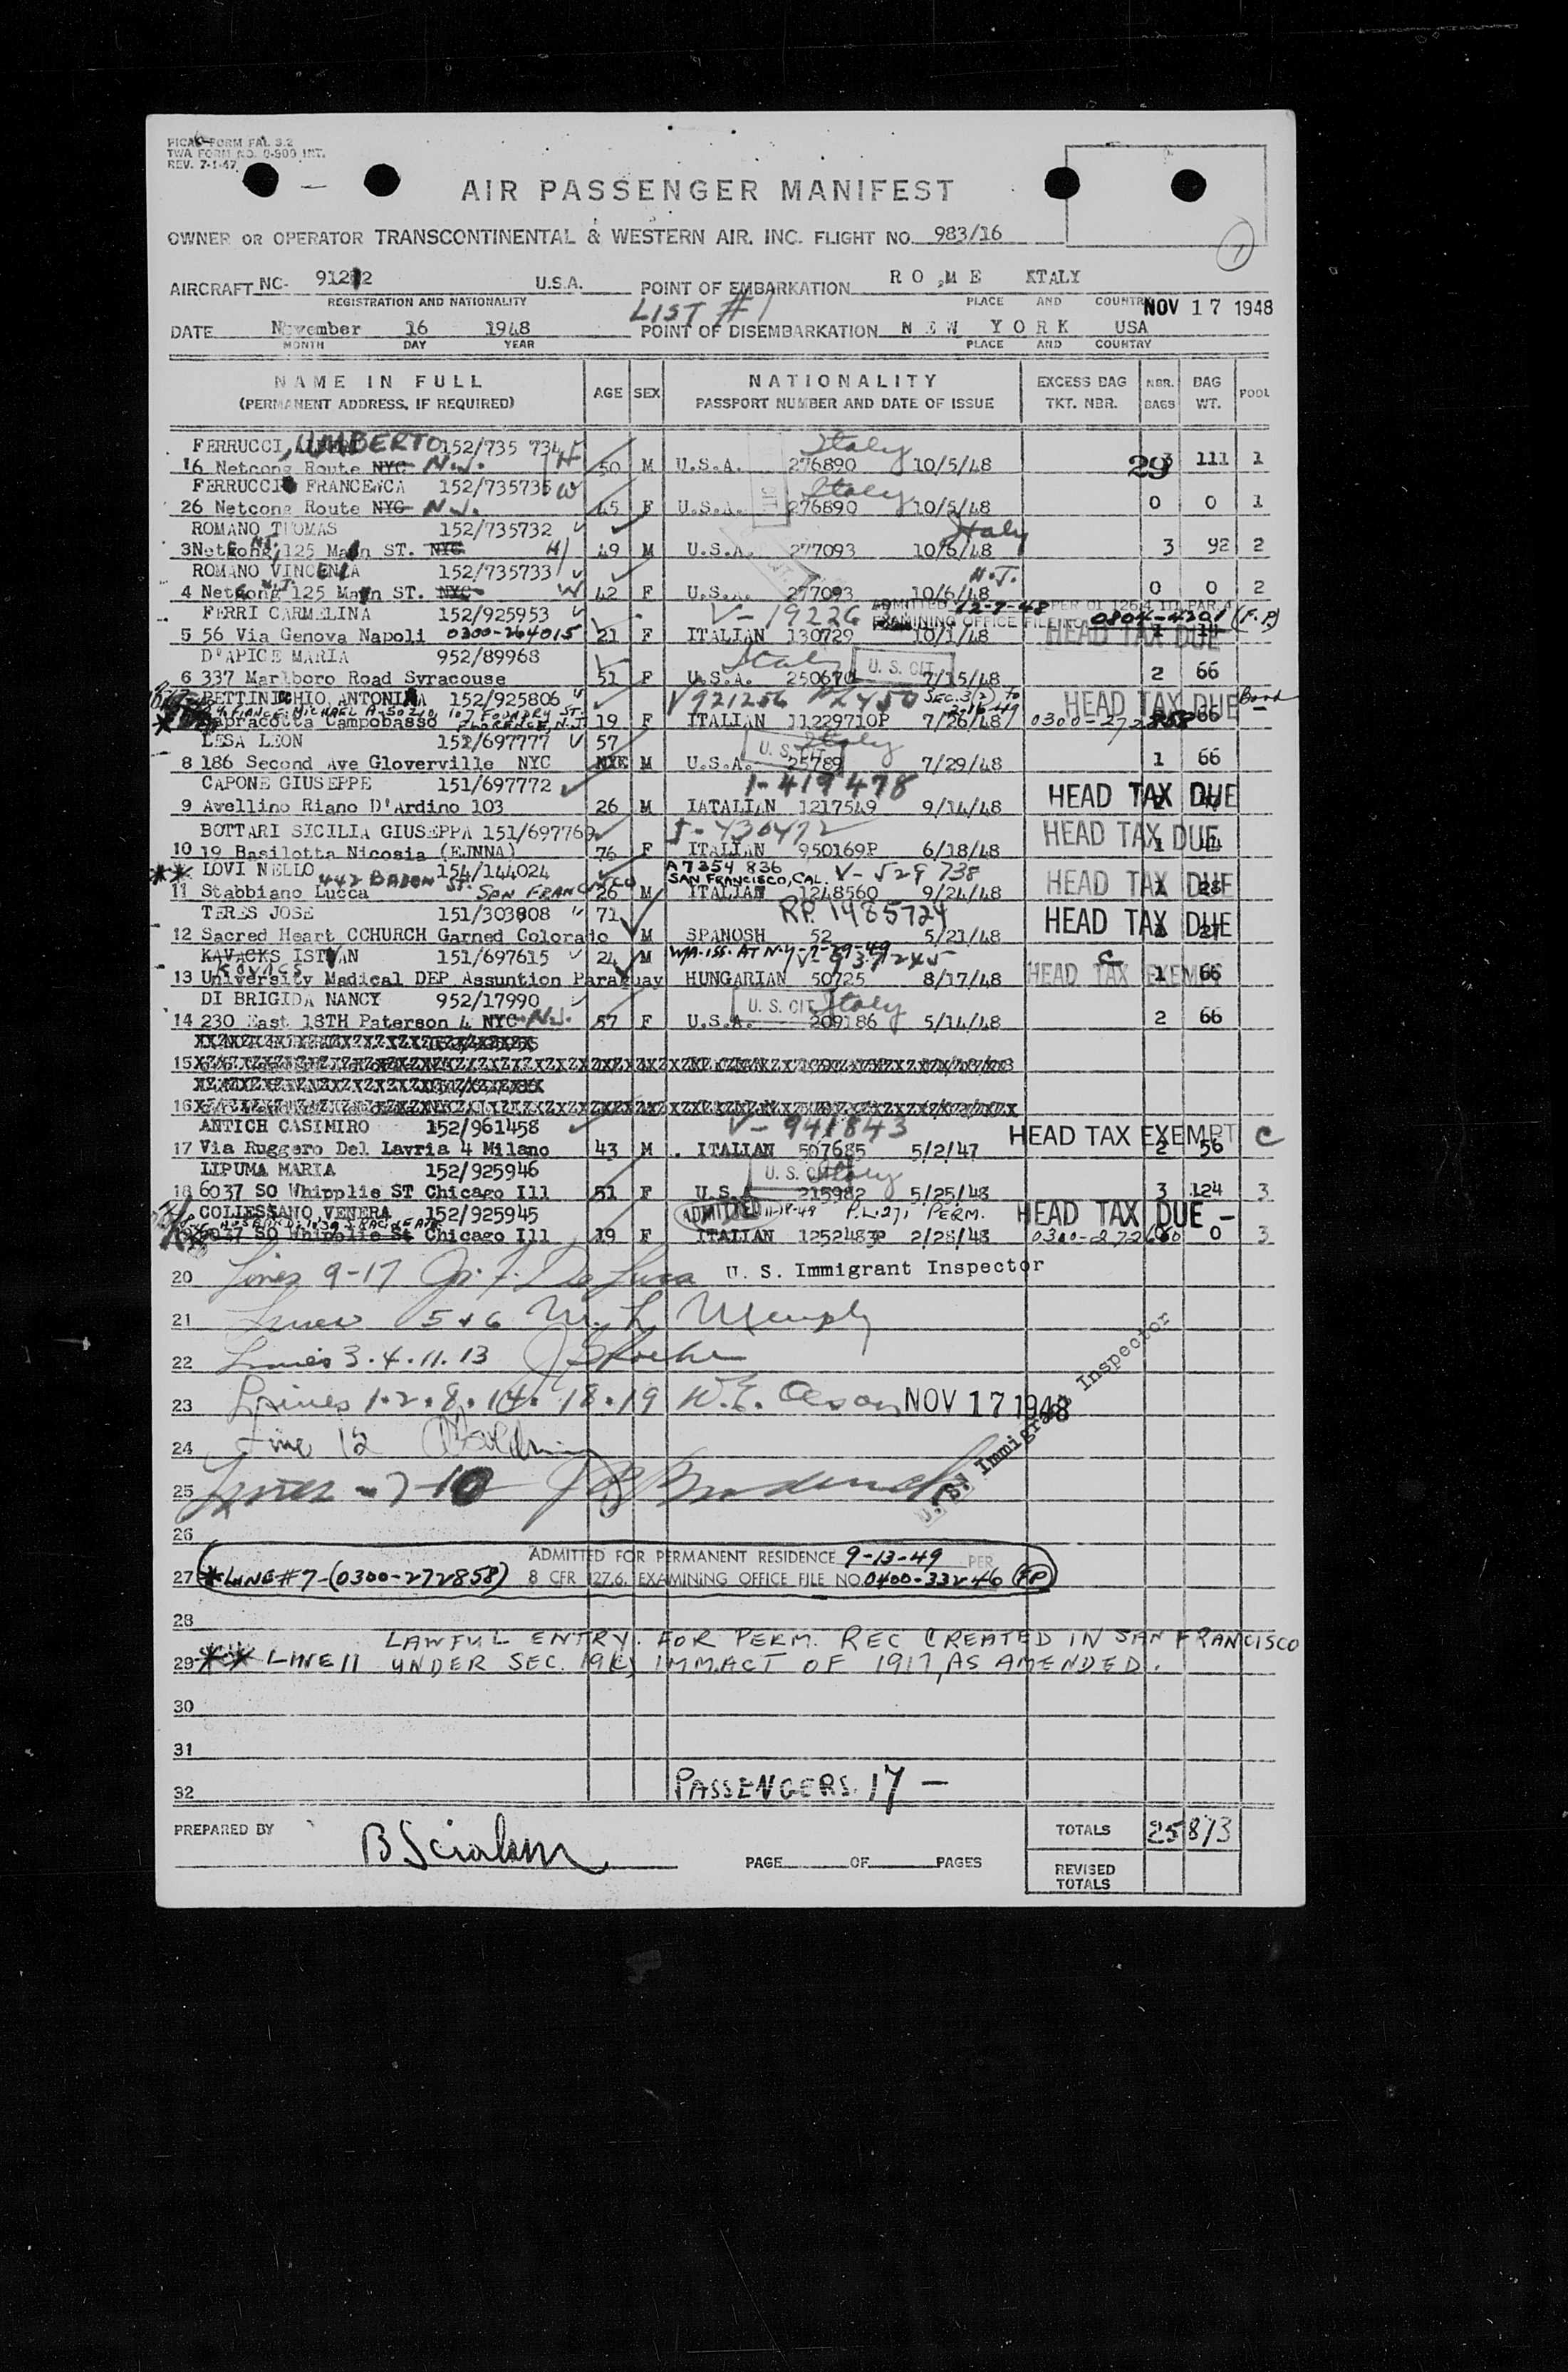 PICAO FORM FAL S.2
TWA FORM NO. 0-900 INT.
REV. 7-1-47
AIR PASSENGER MANIFEST
OWNER OR OPERATOR TRANSCONTINENTAL & WESTERN AIR, INC. FLIGHT NO. 983/16
1
AIRCRAFT NC- U.S.A. POINT OF EMBARKATION R O ,M E
REGISTRATION AND NATIONALITY PLACE AND COUNTRY
LIST #1 NOV 17 1948
DATE November 16 1948 POINT OF DISEMBARKATION N E W Y O R K USA
MONTH DAY YEAR PLACE AND COUNTRY
NAME IN FULL AGE SEX NATIONALITY EXCESS BAG NBR. BAG POOL
(PERMANENT ADDRESS, IF REQUIRED) PASSPORT NUMBER AND DATE OF ISSUE TKT. NBR. BAGS WT.
FERRUCCI, UMBERTO 152/735 734 H Italy
16 Netcong Route NYC N.J. 50 M U.S.A. 276890 10/5/48 111 1
FERRUCCI FRANCENCA 152/735735 W Italy
26 Netcong Route NYC N.J. 45 F U.S.A. 276890 10/5/48 0 0 1
ROMANO THOMAS 152/735732 Italy
3 Netcong, 125 Main ST. NYC H 49 M U.S.A. 277093 10/6/48 3 92 2
ROMANO VINCENZA 152/735733 N.J.
4 Netcong 125 Main ST. NYC W 42 F U.S.A. 277093 10/6/48 0 0 2
FERRI CARMELINA 152/925953 V-19226 ADMITTED 12-7-48 PER
EXAMINING OFFICE FILE NO. 0804-4201 (F.P)
5 56 Via Genova Napoli 0300-264015 21 F ITALIAN 130729 10/1/48 HEAD TAX DUE
D'APICE MARIA 952/89968 Italy U. S. CIT
6 337 Marlboro Road Syracouse 51 F U.S.A. 250670 7/15/48 2 66
BETTINICCHIO ANTONINA 152/925806 V921256 HEAD TAX DUE Bond
FIANCE: MICHAEL A. 107 FOUNDRY ST.
Campobasso FLORENCE, N.J. 19 F ITALIAN 11229710P 7/26/48 0300-272858 66
LESA LEON 152/697777 57 U. S. CIT Italy
8 186 Second Ave Gloverville NYC M U.S.A. 25789 7/29/48 1 66
CAPONE GIUSEPPE 151/697772 1-419478
9 Avellino Riano D'Ardino 103 26 M IATALIAN 1217549 9/14/48 HEAD TAX DUE
BOTTARI SICILIA GIUSEPPA 151/697769
10 19 Basilotta Nicosia (EJNNA) 76 F ITALIAN 950169P 6/18/48 HEAD TAX DUE
** LOVI NELLO 154/144024 A7354 836 V-529 738
442 BADEN ST. SAN FRANCISCO SAN FRANCISCO, CAL.
11 Stabbiano Lucca 26 M ITALIAN 1248560 9/24/48 HEAD TAX DUE
TERES JOSE 151/303808 71 RP. 1485724
12 Sacred Heart CCHURCH Garned Colorado M SPANOSH 52 5/21/48 HEAD TAX DUE
KAVACKS ISTVAN 151/697615 24 M
KOVACS
13 University Madical DEP Assuntion Paraguay HUNGARIAN 50725 8/17/48 HEAD TAX EXEMPT C 1 66
DI BRIGIDA NANCY 952/17990 U. S. CIT Italy
14 230 East 18TH Paterson 4 NYC N.J. 57 F U.S.A. 209186 5/14/48 2 66
15
16
ANTICH CASIMIRO 152/961458 V-941843
17 Via Ruggero Del Lavria 4 Milano 43 M . ITALIAN 507685 5/2/47 HEAD TAX EXEMPT 2 56 C
LIPUMA MARIA 152/925946 U. S. CIT Italy
18 6037 SO Whipplie ST Chicago Ill 51 F U.S.A 215982 5/25/48 3 124 3
COLLESSANO VENERA 152/925945 ADMITTED 11-18-48 P.L.271 PERM. HEAD TAX DUE -
6037 SO Whipplie St Chicago Ill 19 F ITALIAN 1252483P 2/28/48 0 3
20 Lines 9-17 De Luca U. S. Immigrant Inspector
21 Lines 5 & 6
22 Lines 3.4.11.13
23 Lines 1.2.8.14.18.19 W.E. Olson NOV 17 1948
24 Line 12
25 Lines - 7-10
U. S. Immigrant Inspector
26
ADMITTED FOR PERMANENT RESIDENCE 9-13-49 PER
27 * LINE #7-(0300-272858) 8 CFR 127.6. EXAMINING OFFICE FILE NO. 0400-33246 (FP)
28
LAWFUL ENTRY FOR PERM. REC CREATED IN SAN FRANCISCO
29 ** LINE 11 UNDER SEC. 19(c) IMM. ACT OF 1917, AS AMENDED.
30
31
32 PASSENGERS. 17 -
PREPARED BY TOTALS 25 873
PAGE OF PAGES
REVISED
TOTALS